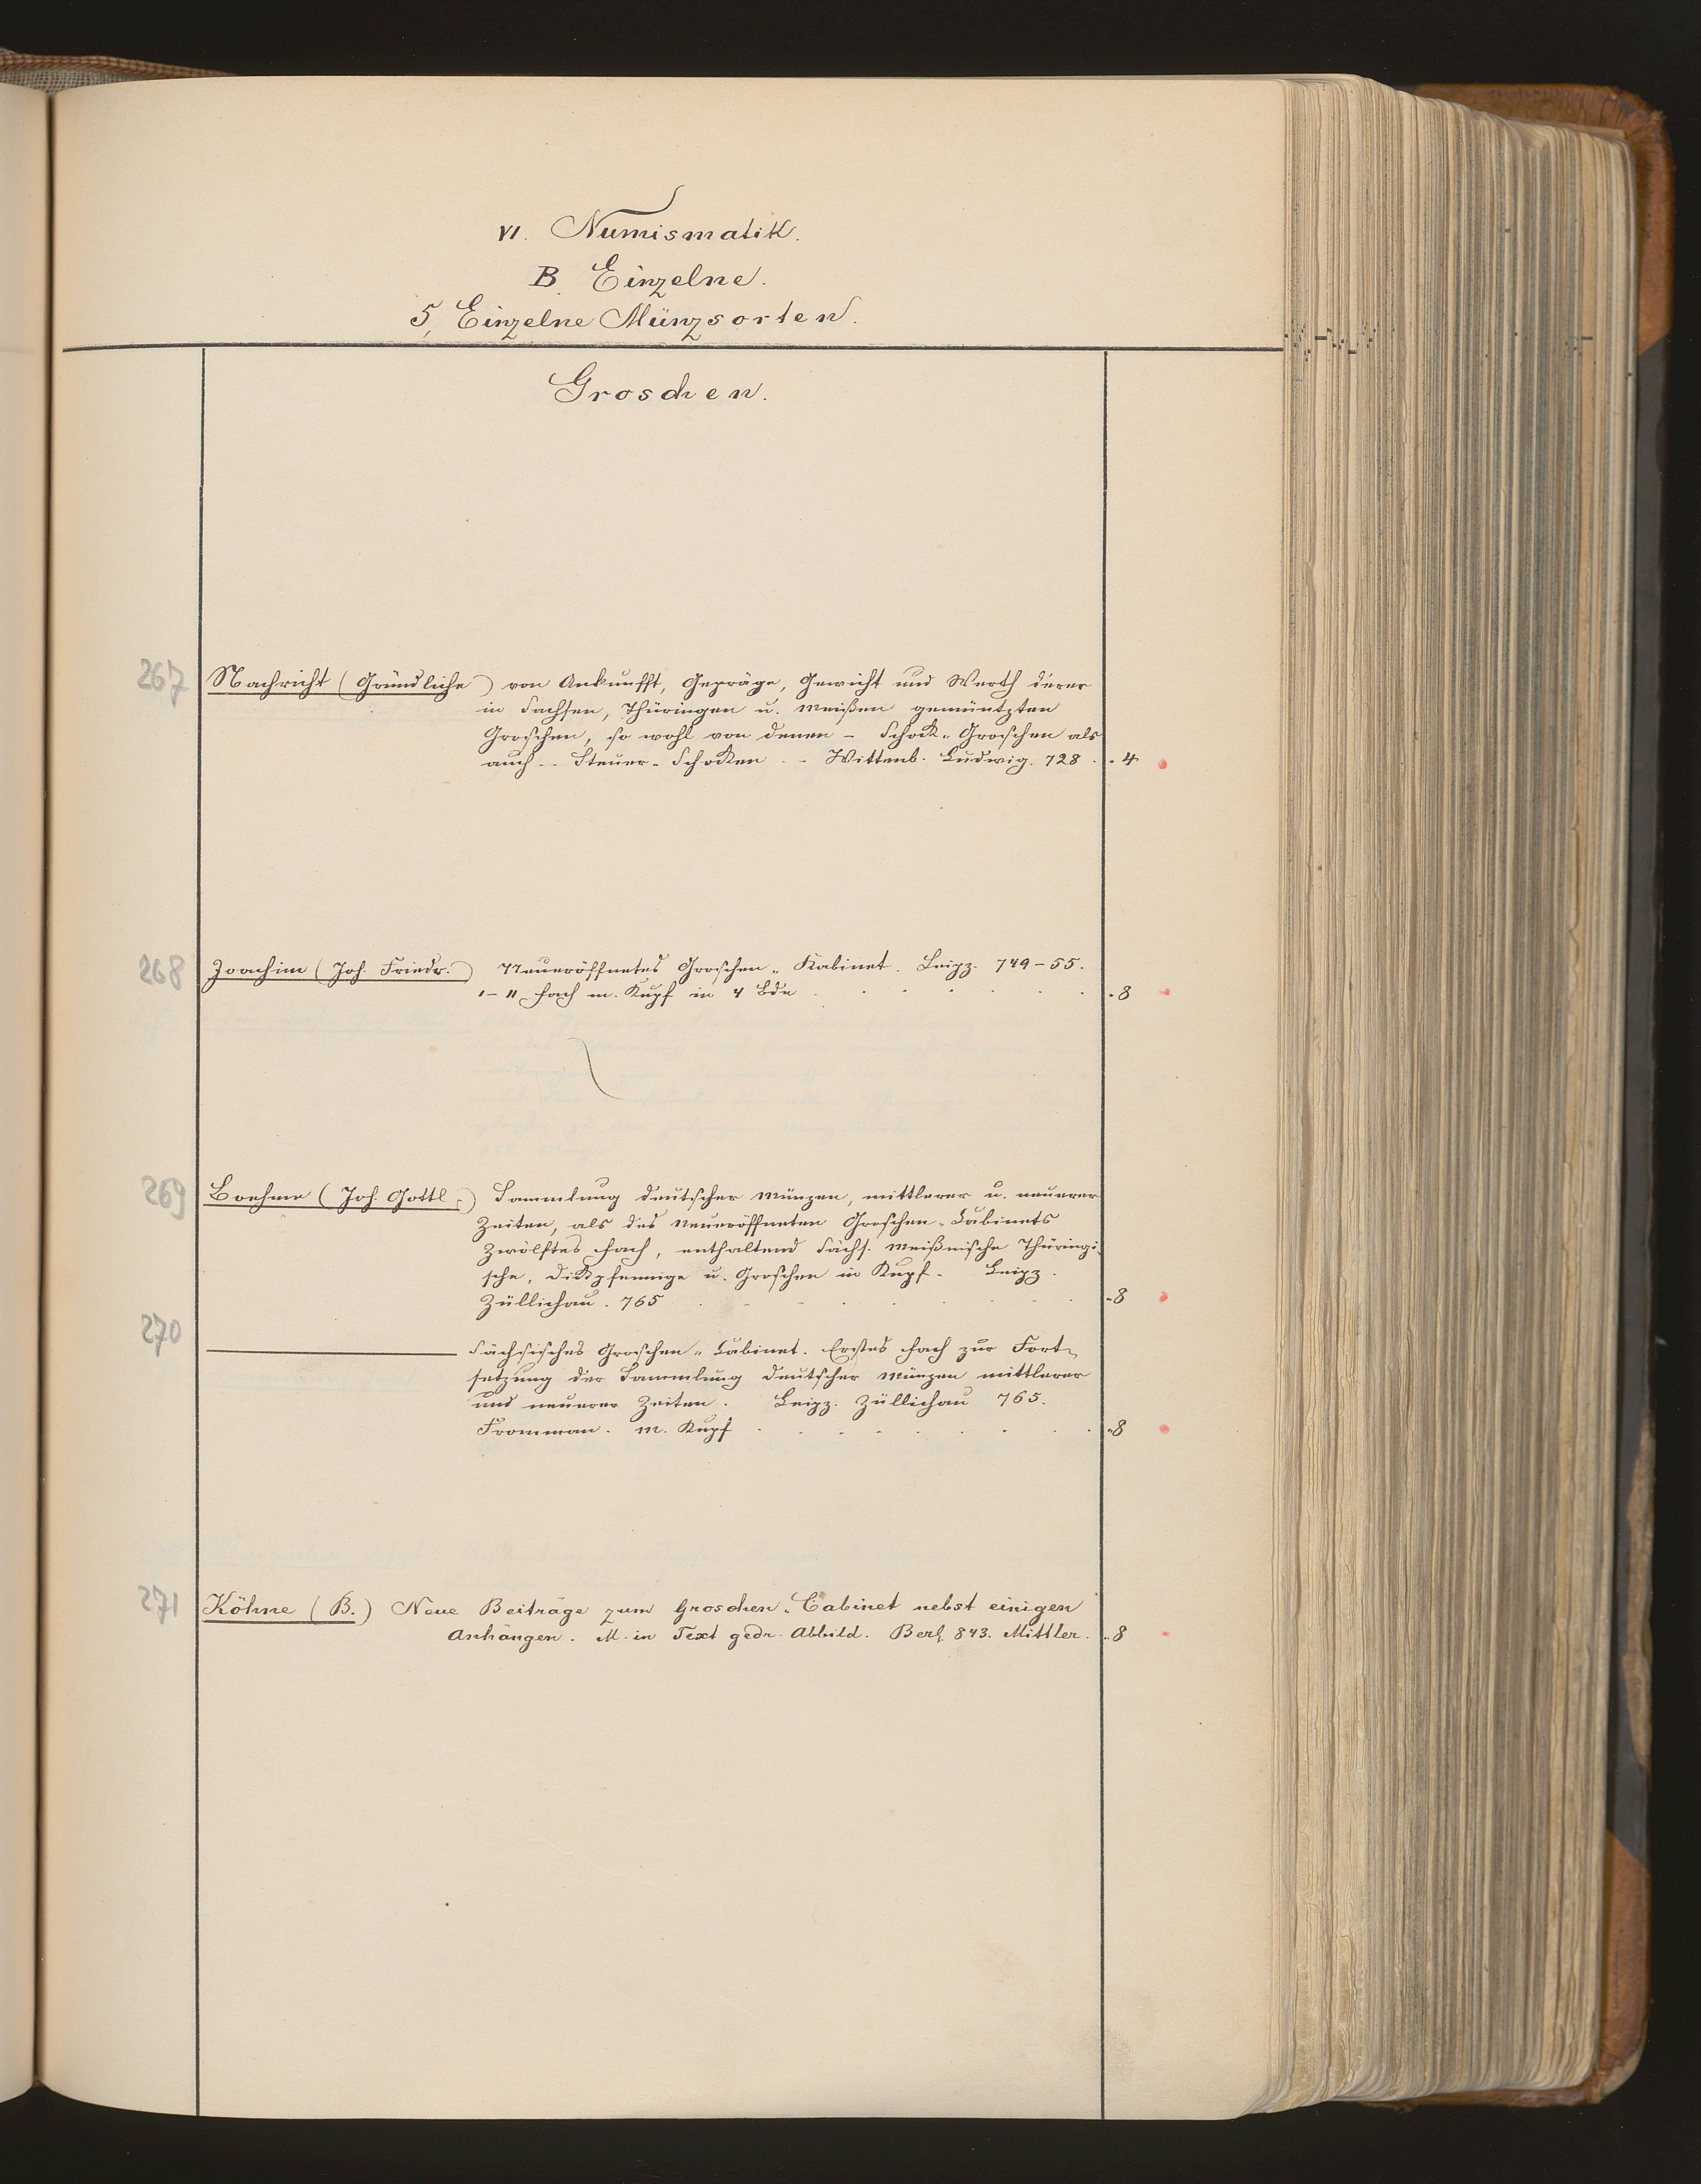 VI. Numismatik.
B. Einzelne.
5, Einzelne Münzsorten.
Groschen.
267 Nachricht (Gründliche) von Ankunfft, Gepräge, Gewicht und Werth derer
in Sachsen, Thüringen u. Meißen gemüntzten
Groschen, so wohl von denen - Schock-Groschen als
auch - Steuer-Schocken. - Wittenb. Ludwig. 728. 4
268 Joachim (Joh. Friedr.) Neueröffnetes Groschen-Kabinet. Leipz. 749-55.
1-11 Fach m. Kupf in 4 Bde 8
269 Boehme (Joh. Gottl.) Sammlung deutscher Münzen, mittlerer u. neuerer
Zeiten, als des Neueröffneten Groschen-Cabinets
Zwölftes Fach, enthaltend Sächs. Meißnische Thüringi-
sche, Dickpfennige u. Groschen in Kupf. Leipz.
Züllichau. 765 8
270 ——— Sächsisches Groschen-Cabinet. Erstes Fach zur Fort-
setzung der Sammlung deutscher Münzen mittlerer
und neuerer Zeiten. Leipz. Züllichau 765.
Fromman. m. Kupf 8
271 Köhne (B.) Neue Beiträge zum Groschen-Cabinet nebst einigen
Anhängen. M. in Text gedr. Abbild. Berl. 843. Mittler. 8